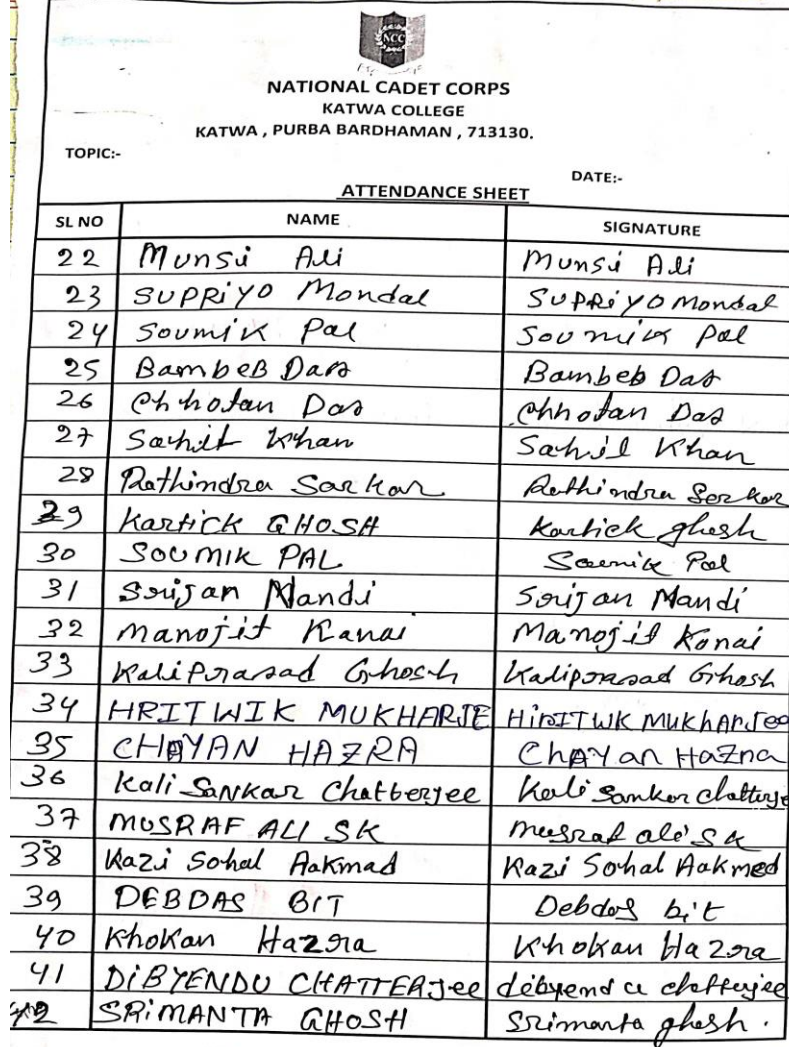 NCC
NATIONAL CADET CORPS
KATWA COLLEGE
KATWA , PURBA BARDHAMAN , 713130.
TOPIC:-
DATE:-
ATTENDANCE SHEET
SL NO NAME SIGNATURE
22 Munsi Ali Munsi Ali
23 SUPRiYO Mondal SUPRiYO Mondal
24 Soumik Pal Soumik Pal
25 BambeB Das Bambeb Das
26 Chhotan Das Chhotan Das
27 Sahil Khan Sahil Khan
28 Rathindra Sarkar Rathindra Serkar
29 Kartick GHOSH Kartick ghosh
30 SOUMIK PAL Soumik Pal
31 Srijan Mandi Srijan Mandi
32 Manojit Kanai Manojit Konai
33 Kaliprasad Ghosh Kaliprasad Ghosh
34 HRITWIK MUKHARJE HiRITWK MUKHARJee
35 CHAYAN HAZRA ChAYan HaZra
36 Kali SaNKar Chatterjee Kali Sankar chatterje
37 MUSRAF ALI SK musraf ali SK
38 Kazi Sohal Aakmad Kazi Sohal Aakmed
39 DEBDAS BIT Debdas bit
40 KhoKan Hazra KhoKan Hazra
41 DiBYENDU CHATTERJee debyendu chatterjee
42 SRiMANTA GHOSH Srimanta ghosh.